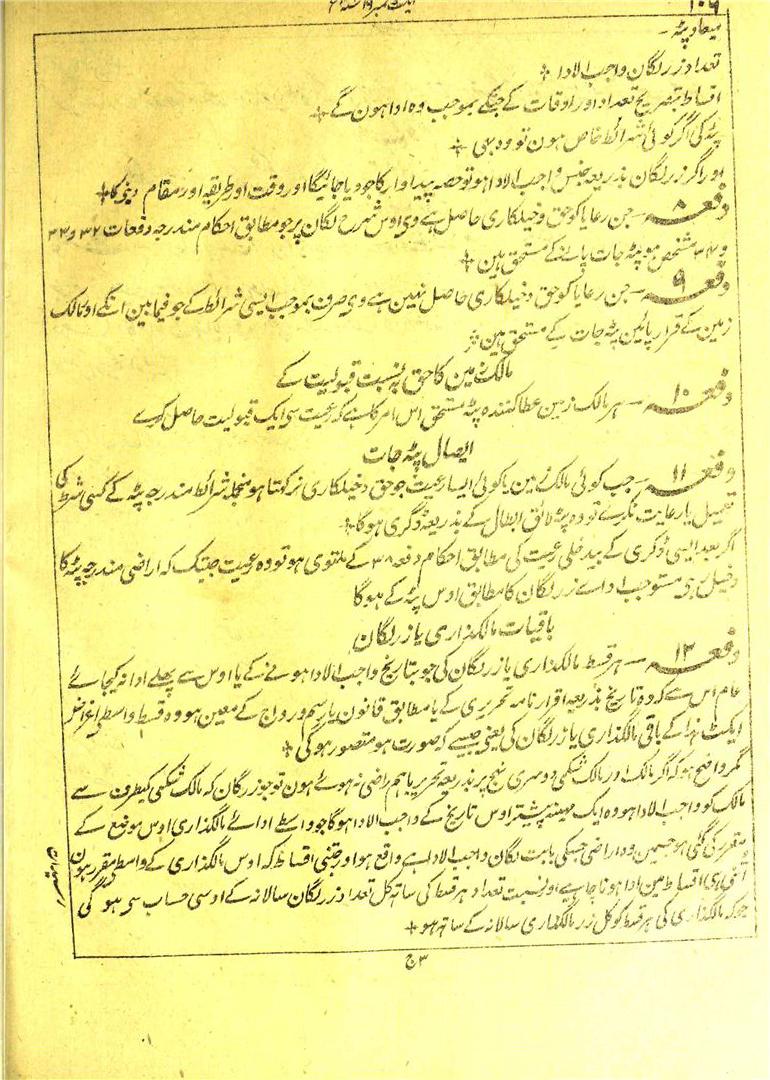 ۱۰۶
میعاد پٹہ -
تعداد زر لگان واجب الادا +
اقساط بتصریح تعداد اور اوقات کے جنکے بموجب وہ ادا ہون گے +
پٹہ کی اگر کوئی شرائط خاص ہون تو وہ بھی +
اور اگر زر لگان بذریعہ جنس واجب الادا ہو تو حصہ پیداوار کا جو دیا جائیگا اور وقت اور طریقہ اور مقام دینے کا +
دفعہ ۸ - جن رعایا کو حق دخیلکاری حاصل ہے وی اوس شرح لگان پر جو مطابق احکام مندرجہ دفعات ۳۲ و ۳۳
و ۳۴ مشخص ہو پٹہ جات پانے کے مستحق ہین +
دفعہ ۹ - جن رعایا کو حق دخیلکاری حاصل نہین ہے وی صرف بموجب ایسی شرائط کے جو فیما بین انکے اور مالک
زمین کے قرار پائین پٹہ جات کے مستحق ہین +
مالک زمین کا حق بہ نسبت قبولیت کے
دفعہ ۱۰ - ہر مالک زمین عطا کنندہ پٹہ مستحق اس امر کا ہے کہ رعیت سی ایک قبولیت حاصل کرے
ابطال پٹہ جات
دفعہ ۱۱ - جب کوئی مالک زمین یا کوئی ایسا رعیت جو حق دخیلکاری نرکھتا ہو منجملہ شرائط مندرجہ پٹہ کے کسی شرط کی
تعمیل یا رعایت نکرے تو وہ پٹہ لائق ابطال کے بذریعہ ڈگری ہوگا +
اگر بعد ایسی ڈگری کے بیدخلی رعیت کی مطابق احکام دفعہ ۳۸ کے ملتوی ہو تو وہ رعیت جبتک کہ اراضی مندرجہ پٹہ کا
دخیل رہی مستوجب اداے زر لگان کا مطابق اوس پٹہ کے ہوگا
باقیات مالگذاری یا زر لگان
دفعہ ۱۲ - ہر قسط مالگذاری یا زر لگان کی جو بتاریخ واجب الادا ہونے کے یا اوس سے پہلے ادا نہ کیجائے
عام اس سے کہ وہ تاریخ بذریعہ اقرارنامہ تحریری کے یا مطابق قانون یا رسم و رواج کے معین ہو وہ قسط واسطی اغراض
ایکٹ ہذا کے باقی مالگذاری یا زر لگان کی یعنی جیسے کہ صورت ہو متصور ہوگی +
مگر واضح ہو کہ اگر مالک اور مالک شکمی دوسری نہج پر بذریعہ تحریر باہم راضی نہ ہوئے ہون تو جو زر لگان کہ مالک شکمی کیطرف سے
مالک کو واجب الادا ہو وہ ایک مہینہ پیشتر اوس تاریخ کے واجب الادا ہوگا جو واسطے ادائے مالگذاری اوس موضع کے
مقرر کی گئی ہو جسمین وہ اراضی جسکی بابت لگان واجب الادا ہے واقع ہو اور جتنی اقساط کہ اوس مالگذاری کے واسطے مقرر ہون
اقساط مین ادا ہونا چاہیے اور نسبت تعداد ہر قسط کی ساتھ کل تعداد زر لگان سالانہ کے اوسی حساب سی ہوگی
جو کہ مالگذاری کی ہر قسط کو کل زر مالگذاری سالانہ کے ساتھ ہو +
۳ ج